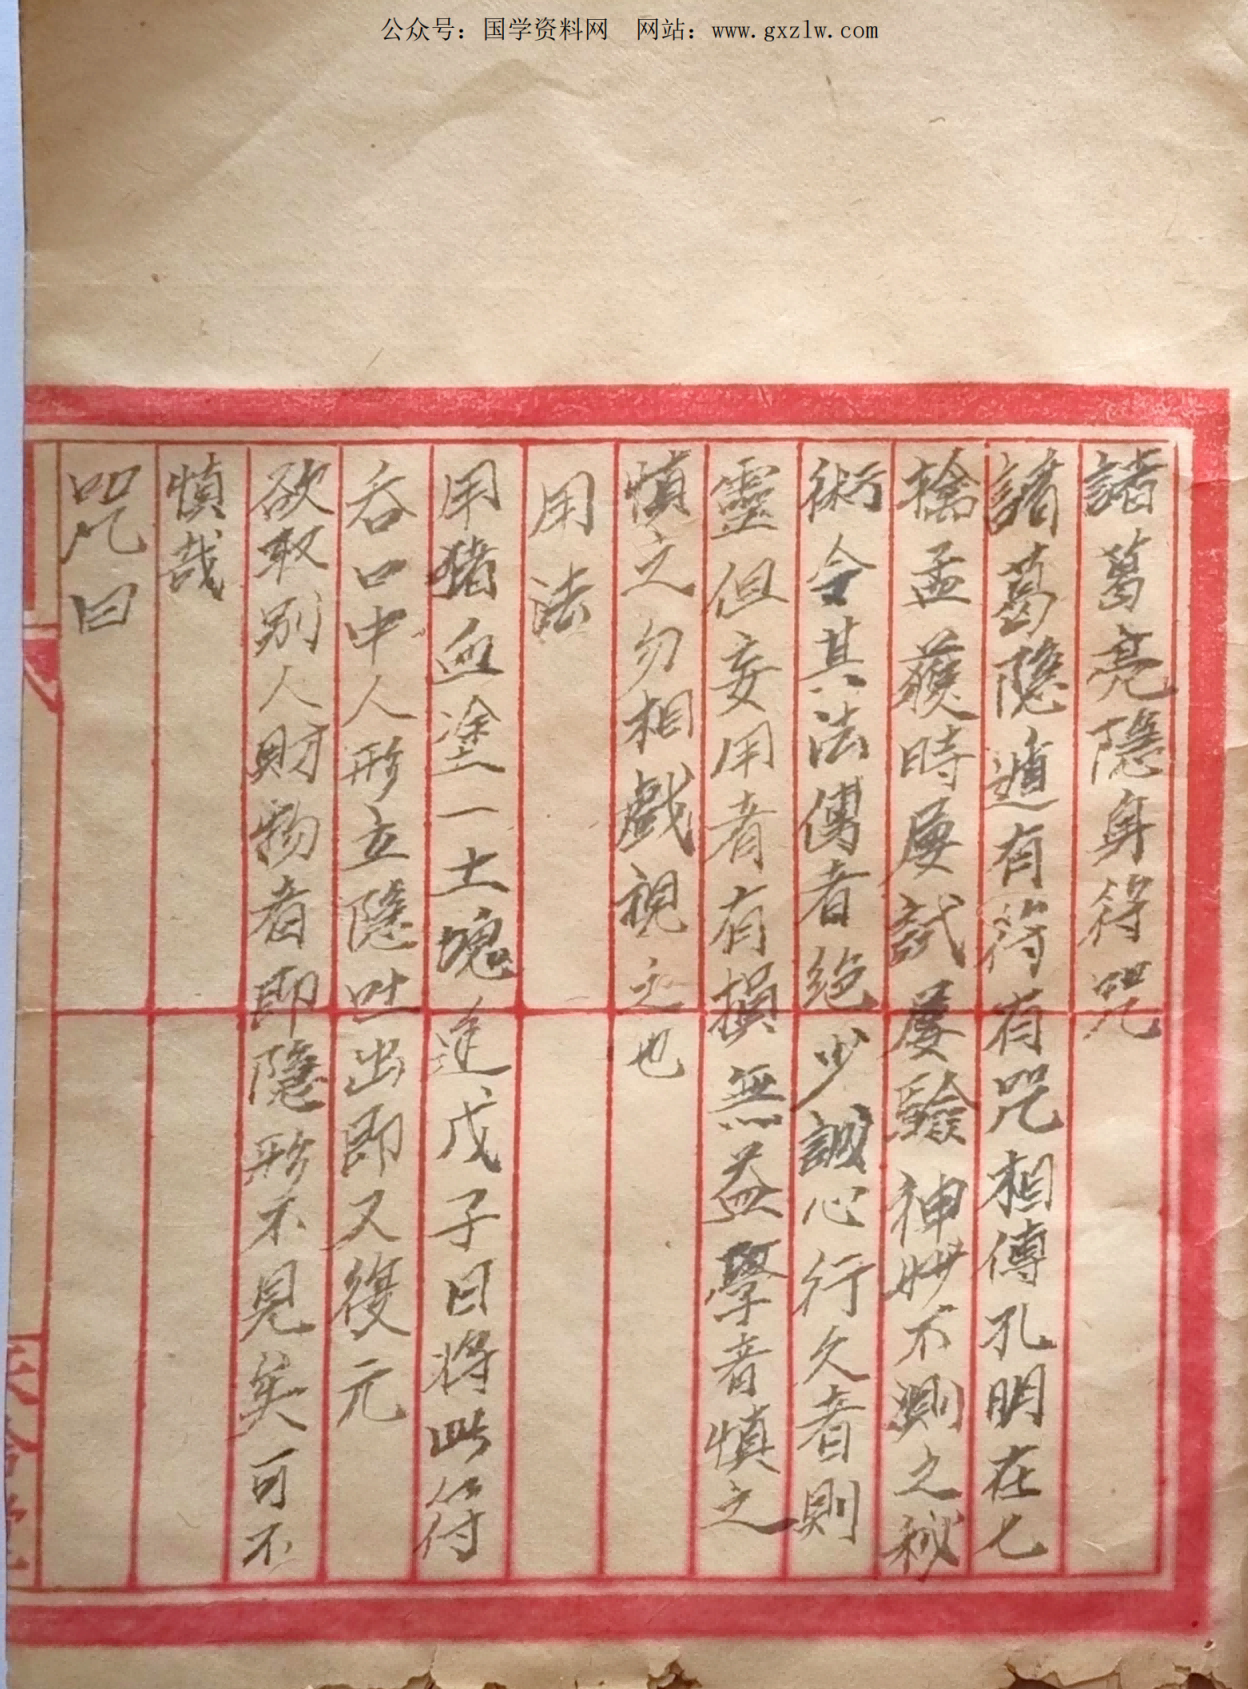 公众号：国学资料网　网站：www.gxzlw.com
諸葛亮隱身符咒
諸葛隱遁有符有咒相傳孔明在七
擒孟獲時屢試屢驗神妙不測之秘
術今其法傳者絶少誠心行久者則
靈但妄用者有損無益學者慎之
慎之勿相戲視之也
用法
用猪血塗一土塊逢戊子日將此符
吞口中人形立隱吐出即又復元
欲取别人財物者即隱形不見矣可不
慎哉
咒曰